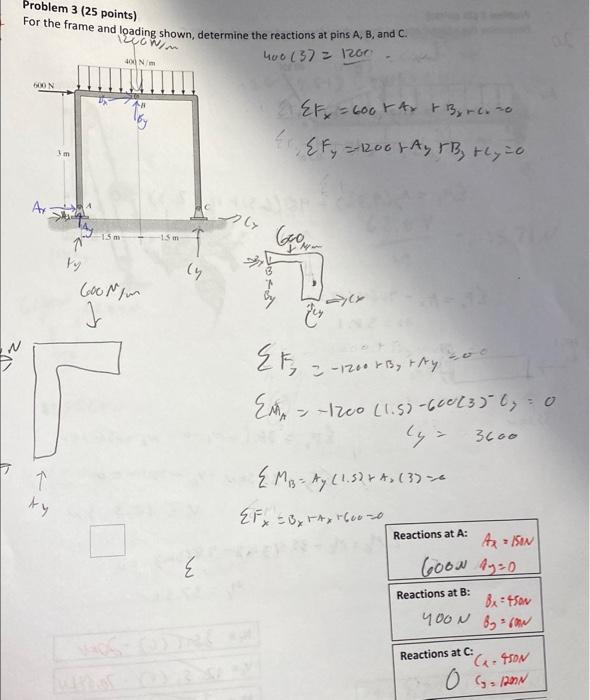 Problem 3 (25 points)
For the frame and loading shown, determine the reactions at pins A, B, and C.
1200 N/m
400 (3) = 1200
400 N/m
600 N
Bx
B
By
ΣFx = 600 + Ax + Bx + Cx = 0
ΣFy = -1200 + Ay + By + Cy = 0
3 m
Ax
A
C
Ay
Cx
1.5 m
1.5 m
Ay
Cy
600
N/m
B
By
Cx
Cy
600 N/m
N
ΣFy = -1200 + By + Ay = 0
ΣMA = -1200 (1.5) - 600(3) - Cy = 0
Cy = 3600
ΣMB = Ay (1.5) + Ax (3) = 0
Ay
ΣFx = Bx + Ax + 600 = 0
Σ
Reactions at A:
Ax = 150N
600N Ay = 0
Reactions at B:
Bx = 450N
400 N By = 600N
Reactions at C:
Cx = 450N
0 Cy = 1200N